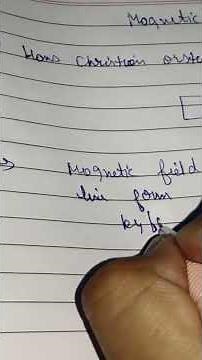 Magnetic
Hans Christian orste
Magnetic field
line form
by